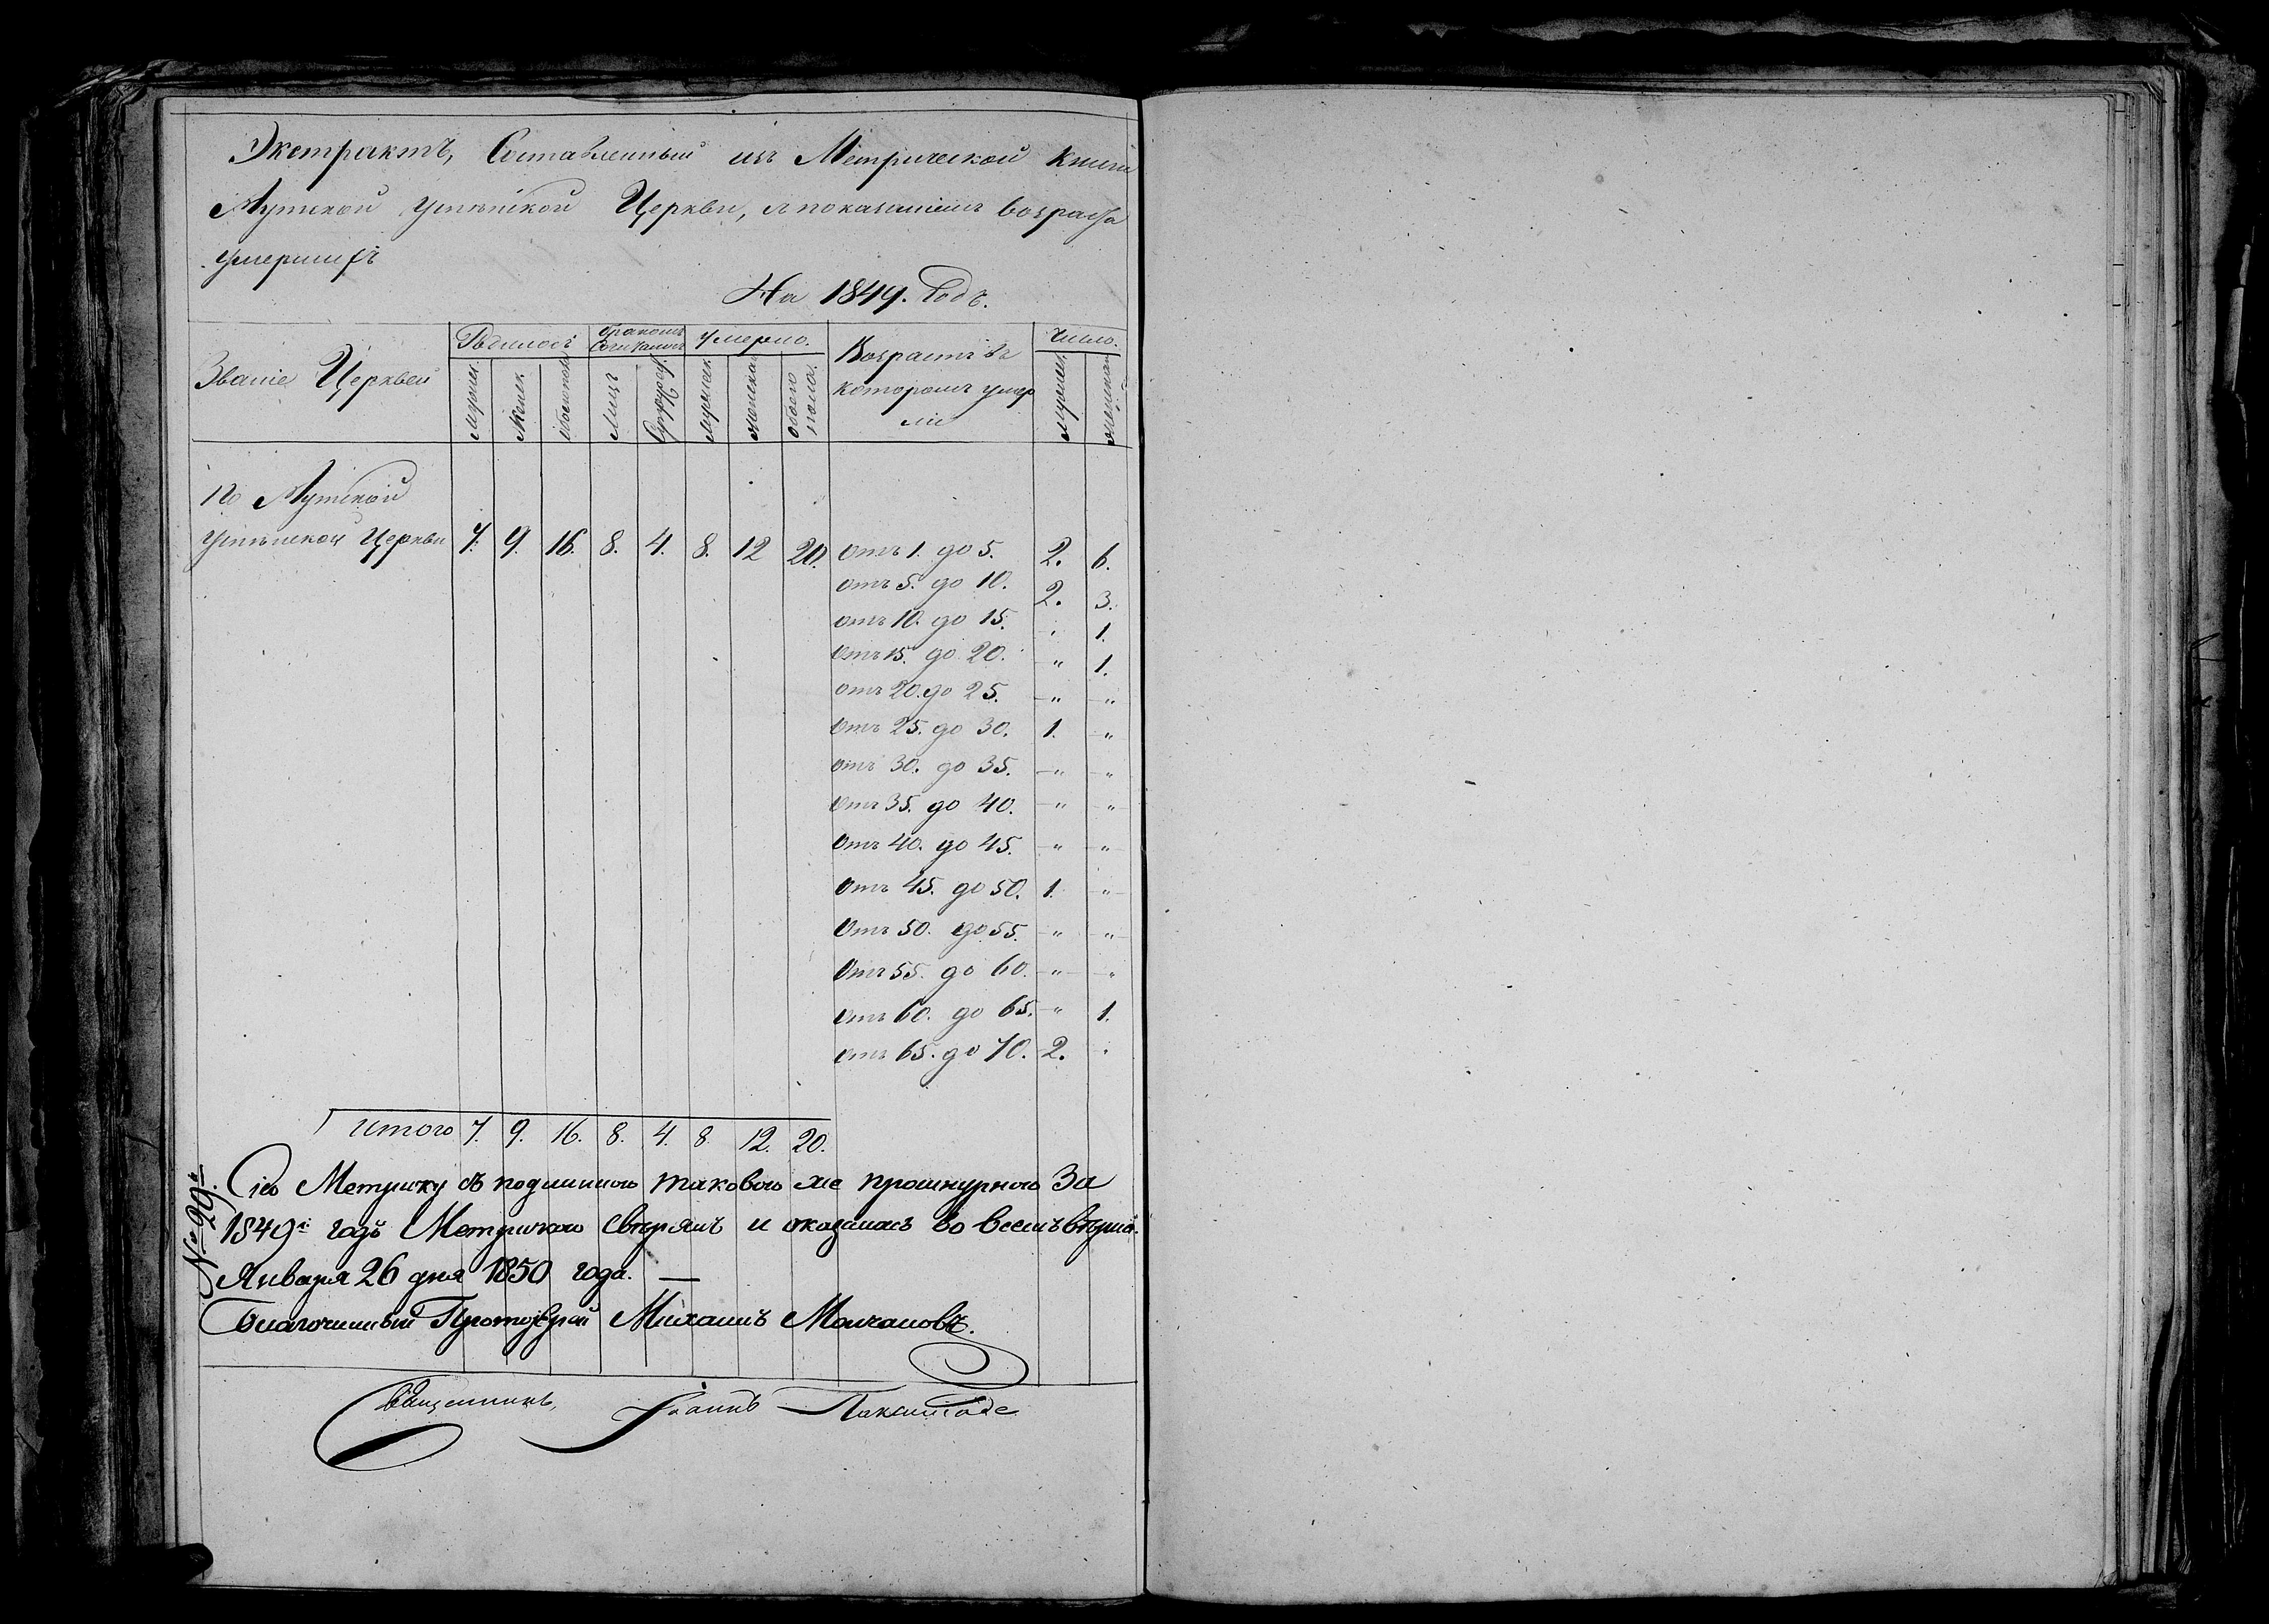 Экстрактъ, Составленный изъ Метрической книги
Церкви, съ показаніемъ возраста
умершихъ
На 1849. Годъ.
Званіе Церквей
Родилось
Бракомъ Сочитались
Умерло.
Возрастъ въ которомъ умерли
Число.
Мужеск.
Женск.
обоего пола
Лицъ
Супруж.
Мужеск.
Женска
обоего пола.
Мужеск.
Женска
По
Церкви 7. 9. 16. 8. 4. 8. 12 20. отъ 1. до 5. 2. 6.
отъ 5. до 10. 2. 3.
отъ 10. до 15. „ 1.
отъ 15. до 20. „ 1.
отъ 20. до 25. „ „
отъ 25. до 30. 1. „
отъ 30. до 35. „ „
отъ 35. до 40. „ „
отъ 40. до 45. „ „
отъ 45. до 50. 1. „
отъ 50. до 55. „ „
отъ 55. до 60. „ „
отъ 60. до 65. „ 1.
отъ 65. до 70. 2. „
Итого 7. 9. 16. 8. 4. 8. 12. 20.
№ 29.
Сію Метрику съ подлинного таковаго же прошнурного За
1849й годъ Метрикою свѣрялъ и оказалась во всемъ вѣрна.
Января 26 дня 1850 года. —
Благочинный Протоіерей Михаилъ Молчановъ.
Священникъ, Іоаннъ